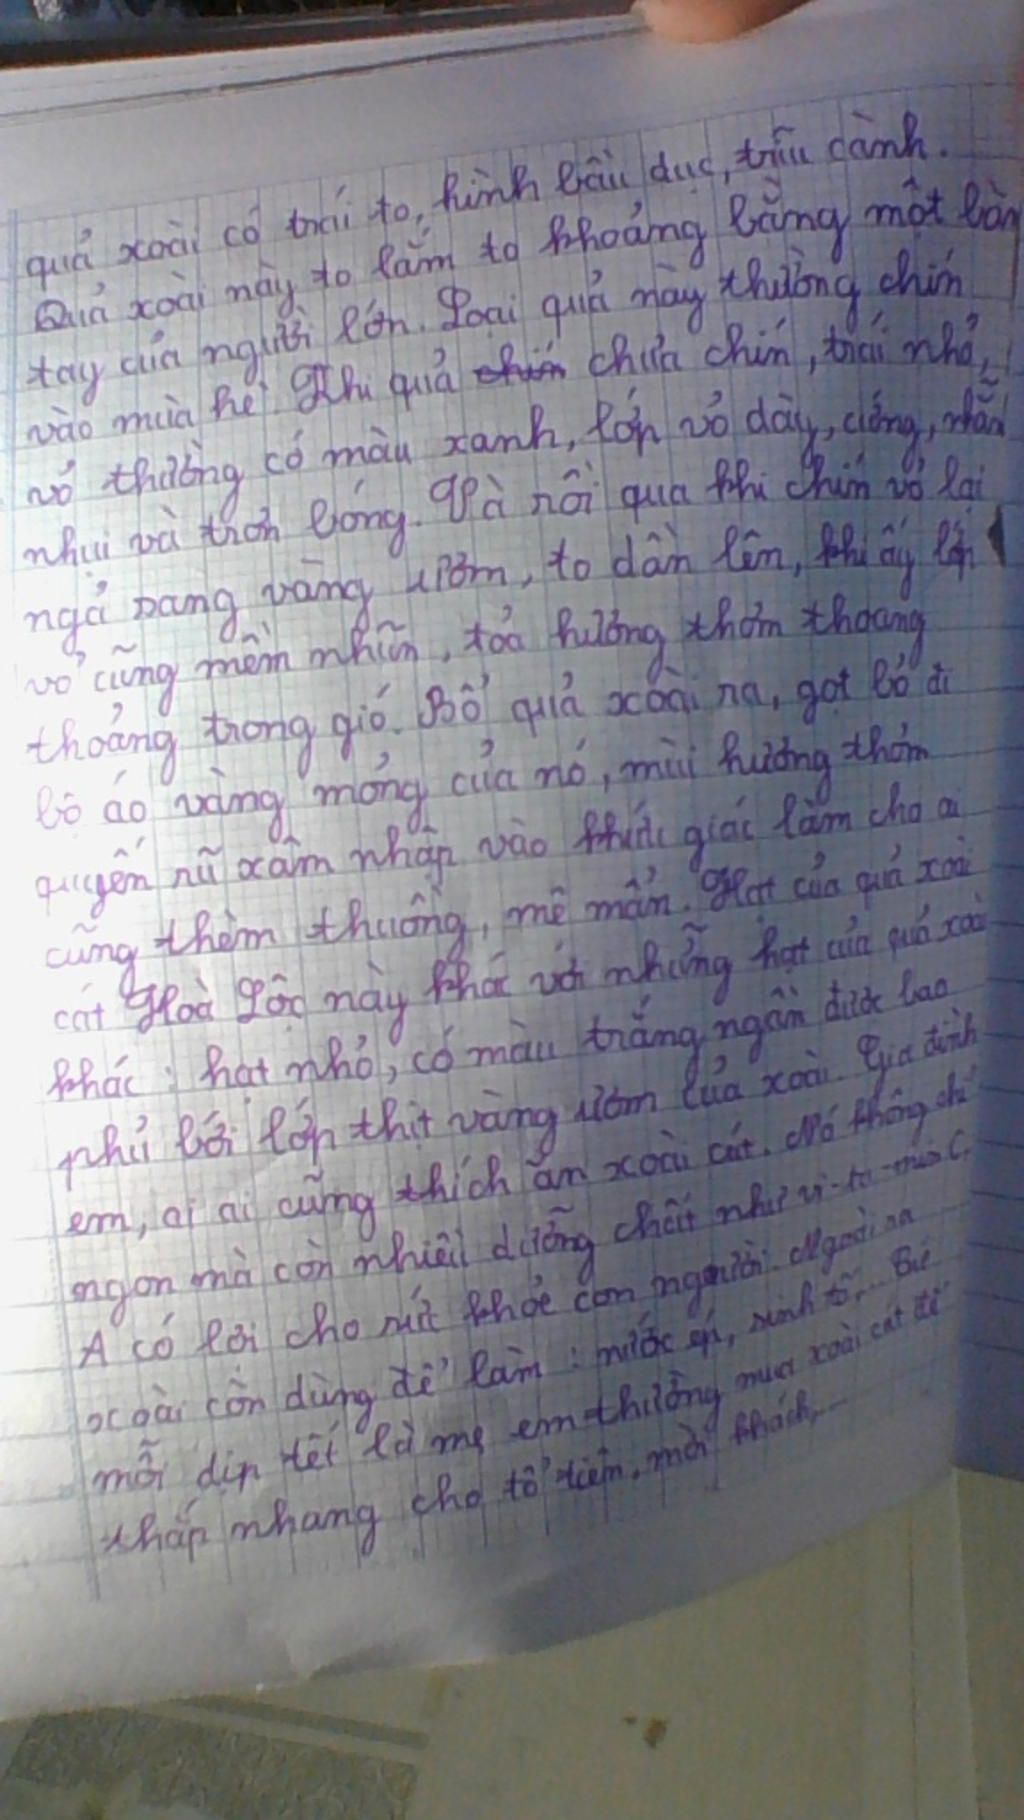 quả xoài có trái to, hình bầu dục, trĩu cành.
Quả xoài này to lắm to khoảng bằng một bàn
tay của người lớn. Loại quả này thường chín
vào mùa hè. Khi quả chín chưa chín, trái nhỏ,
vỏ thường có màu xanh, lớp vỏ dày, cứng, nhẵn
nhụi và trơn bóng. Và rồi qua khi chín vỏ lại
ngả sang vàng ươm, to dần lên, khi ấy lớp
vỏ cũng mềm nhũn, tỏa hương thơm thoang
thoảng trong gió. Bổ quả xoài ra, gọt bỏ đi
bộ áo vàng mỏng của nó, mùi hương thơm
quyến rũ xâm nhập vào khứu giác làm cho ai
cũng thèm thuồng, mê mẩn. Hạt của quả xoài
cát Hoà Lộc này khác với những hạt của quả xoài
khác: hạt nhỏ, có màu trắng ngần được bao
phủ bởi lớp thịt vàng ươm của xoài. Gia đình
em, ai ai cũng thích ăn xoài cát. Nó không chỉ
ngon mà còn nhiều dưỡng chất như vi-ta-min C,
A có lợi cho sức khỏe con người. Ngoài ra
xoài còn dùng để làm: nước ép, sinh tố,... Cứ
mỗi dịp tết là mẹ em thường mua xoài cát để
thắp nhang cho tổ tiên, mời khách,...